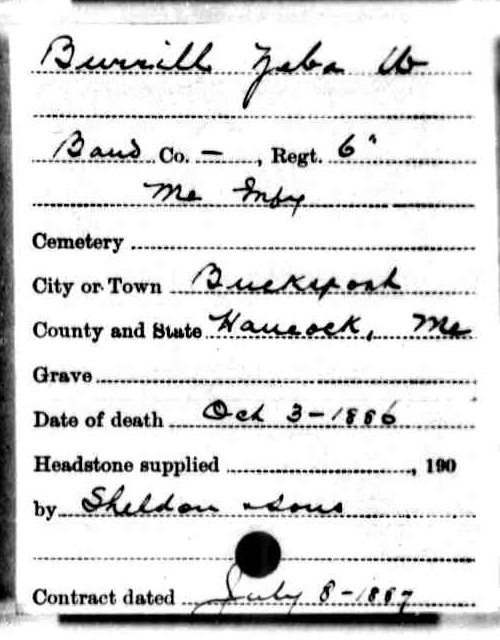 Burrill Zeba W
Band Co. —, Regt. 6"
Me Infy
Cemetery
City or Town Bucksport
County and State Hancock, Me
Grave
Date of death Oct 3-1886
Headstone supplied , 190
by Sheldon & Sons
Contract dated July 8-1887